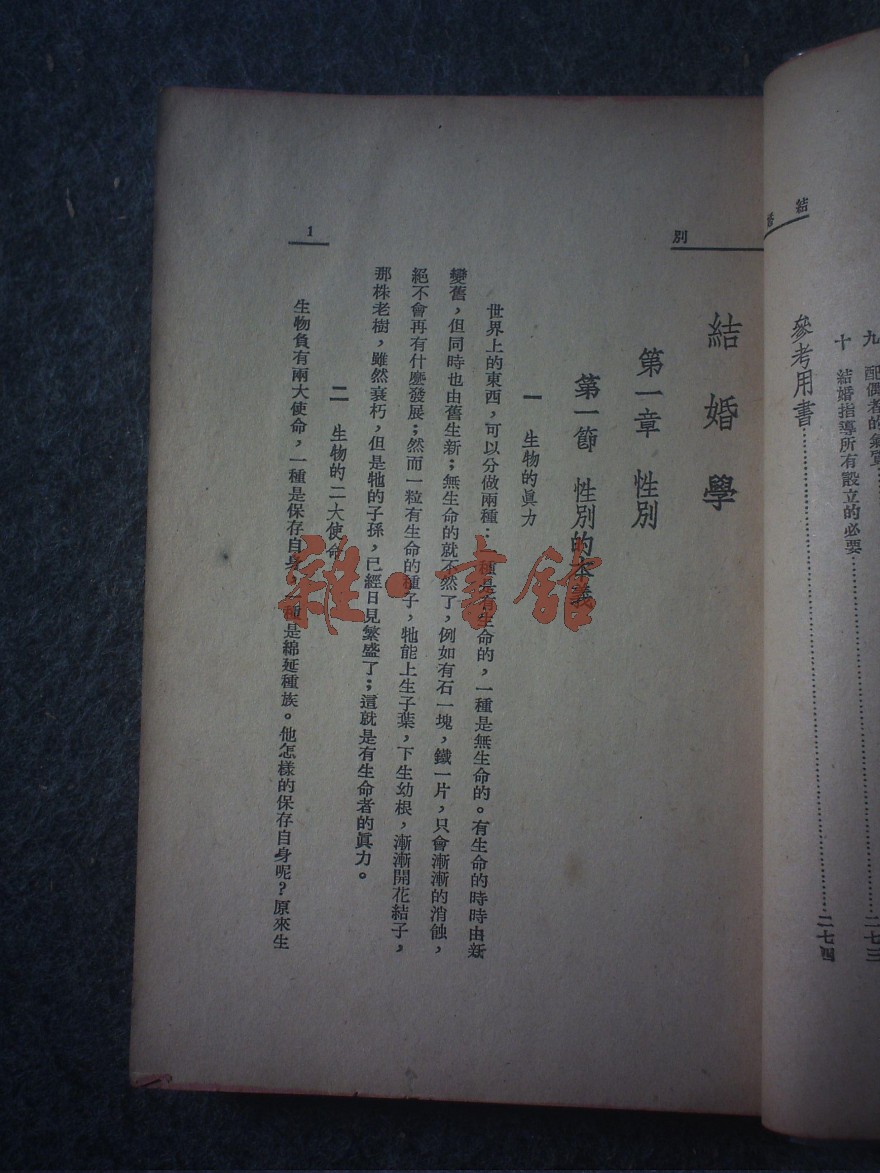 結
九 配偶者的氣質……二七三
十 結婚指導所有設立的必要……二七四
參考用書……
別
結婚學
第一章 性別
第一節 性別的本義
一 生物的眞力
世界上的東西，可以分做兩種：一種是有生命的，一種是無生命的。有生命的時時由新
變舊，但同時也由舊生新；無生命的就不然了，例如有石一塊，鐵一片，只會漸漸的消蝕，
絕不會再有什麼發展；然而一粒有生命的種子，牠能上生子葉，下生幼根，漸漸開花結子，
那株老樹，雖然衰朽，但是牠的子孫，已經日見繁盛了；這就是有生命者的眞力。
二 生物的二大使命
生物負有兩大使命，一種是保存自身，一種是綿延種族。他怎樣的保存自身呢？原來生
1
雜·書館